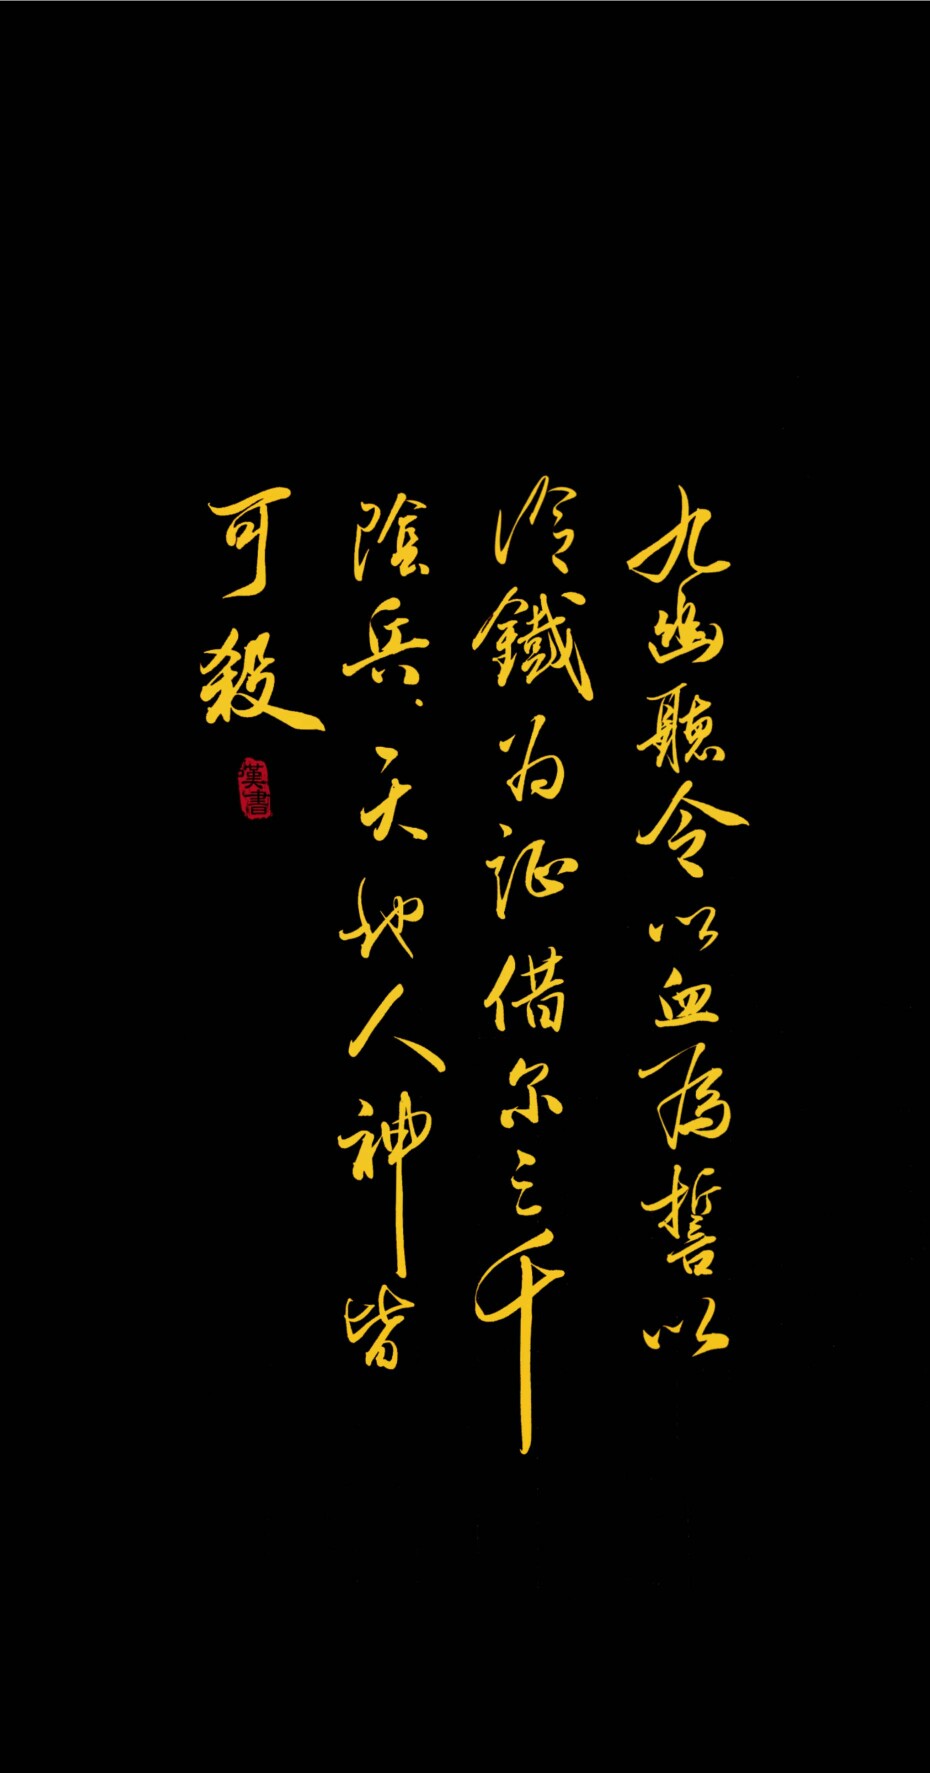 九幽聽令以血為誓以
冷鐵为证借尔三千
陰兵.天地人神皆
可殺
漢書